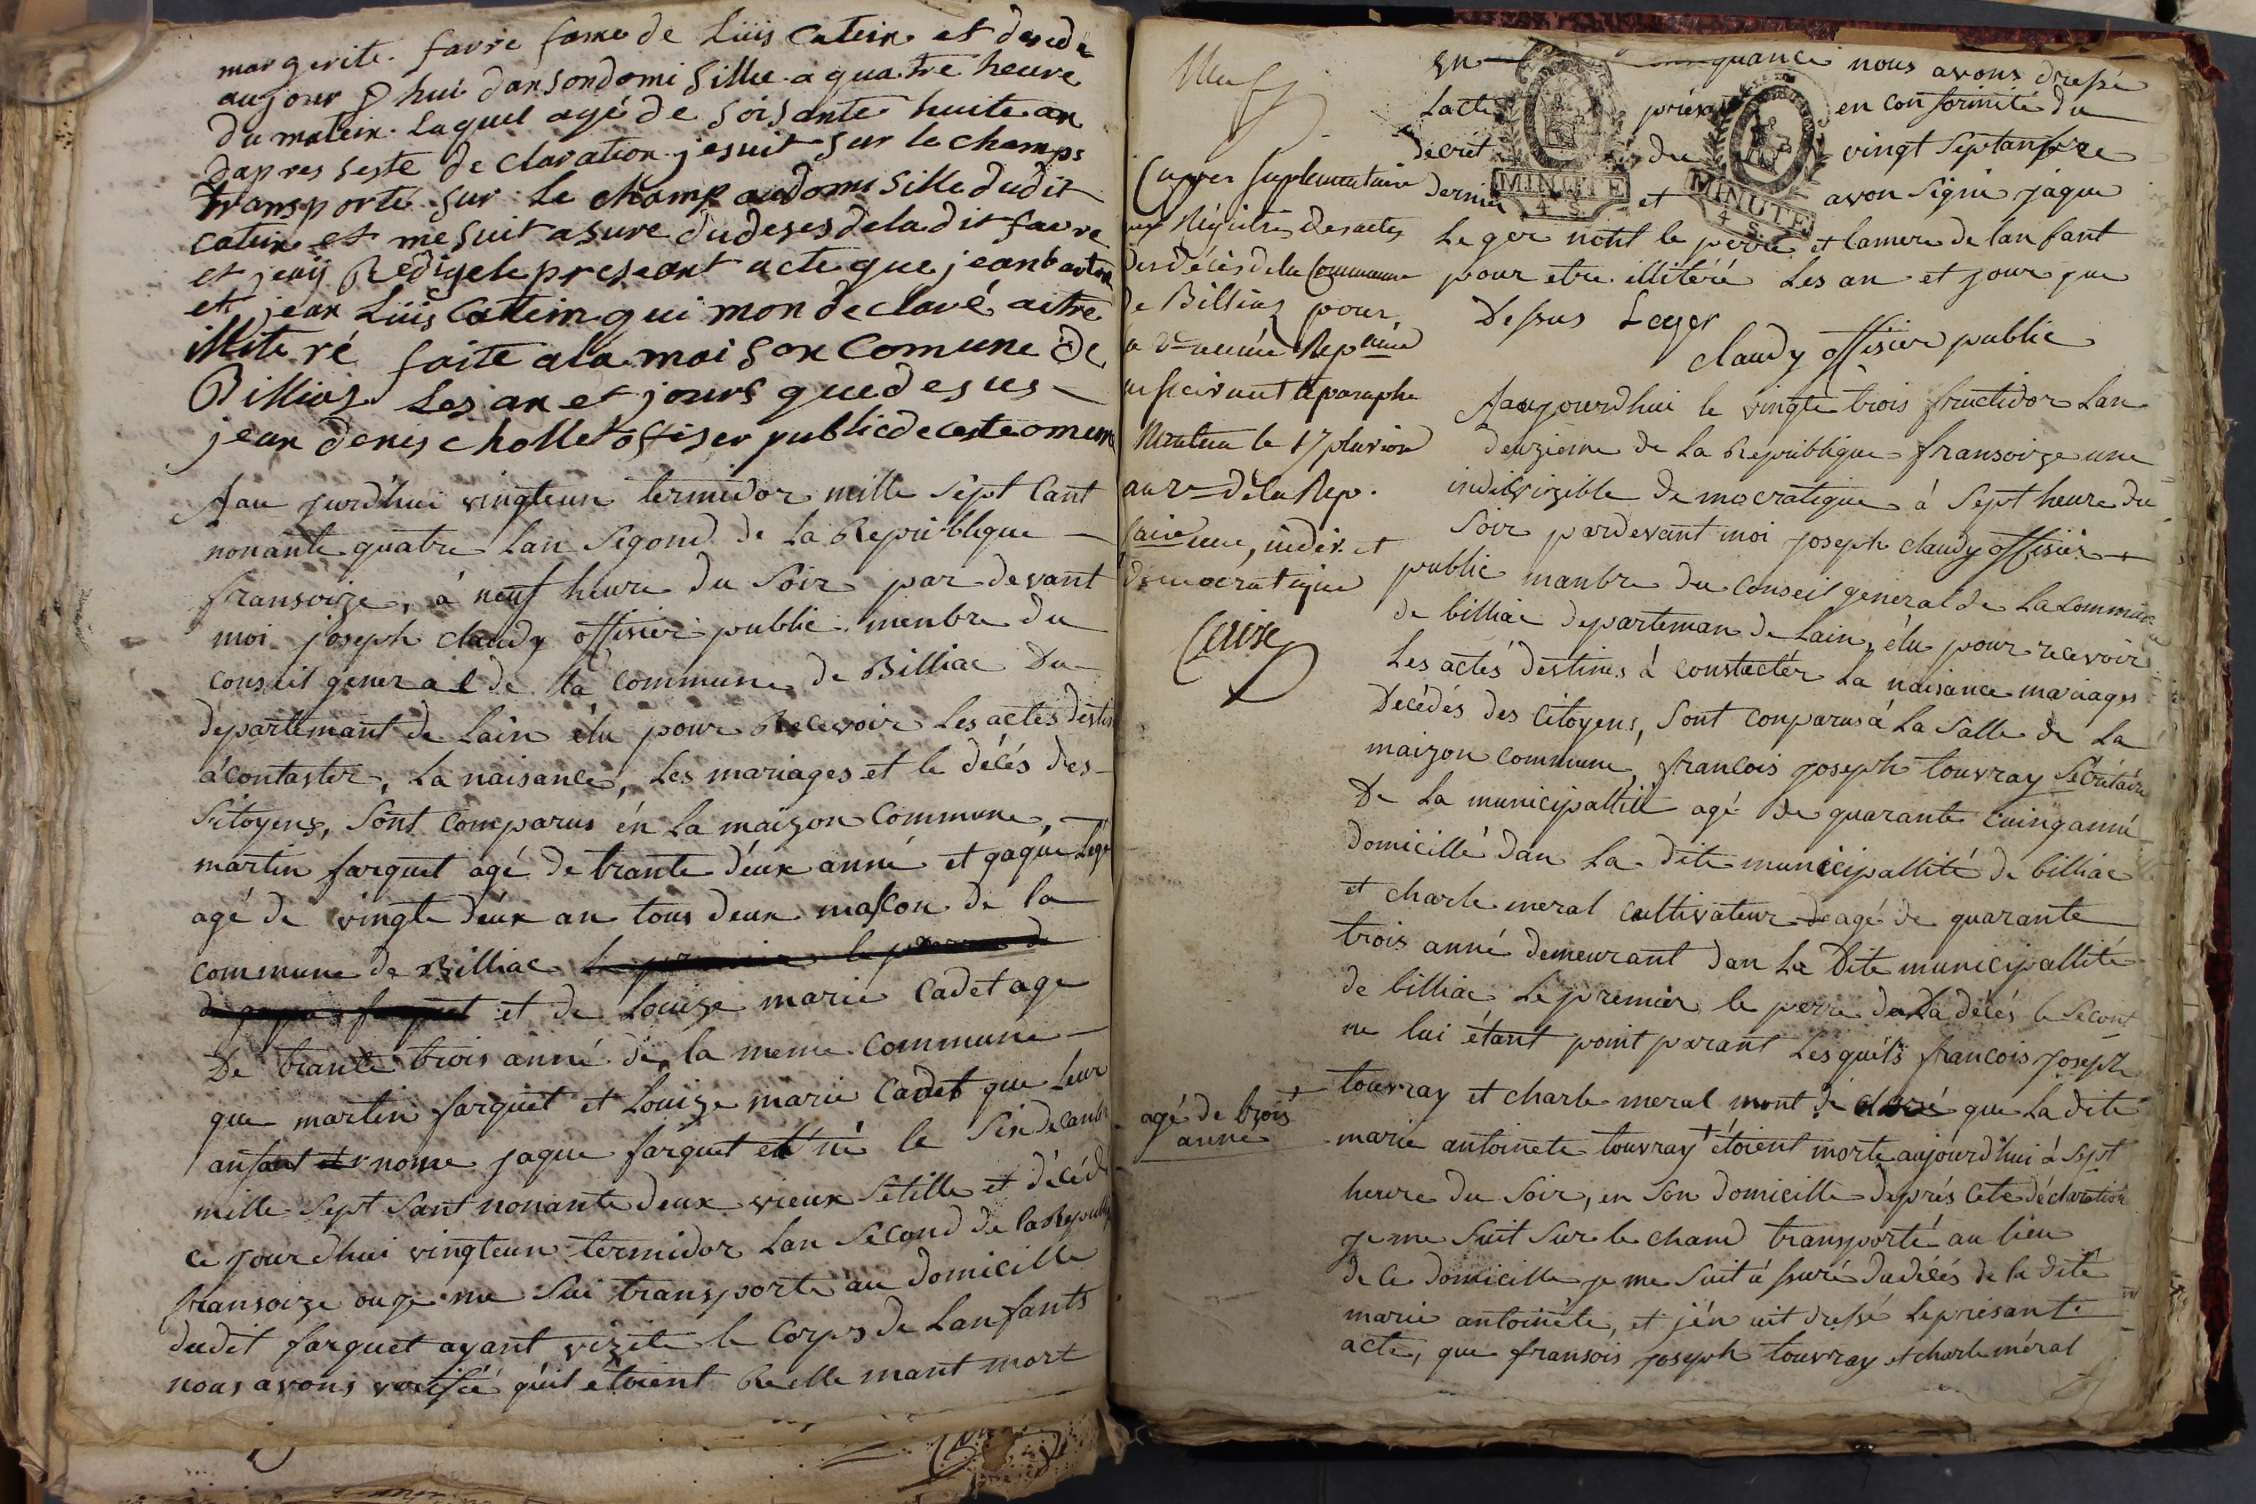 margerite favre fame de Lüis Catein et desede
aujour D hui dansondomi Sille a quatre heure
du matein laquel agé de soisante huite an
dapres seste de claration jesuit sur le champs
transporté sur Le champ audomi Sille dudit
catein et mesuit asure dudeses deladit favre
et jeay Redigele preseant acte que jean
et jean Lüis Catein qui mon de claré aitre
illite ré faite ala mai son Comune de
Billias Les an et jours quedesus
jean denis chollet offiser public de
Aau jurd'hui vingteun termidor mille sept Cant
nonante quatre Lan Segond de La Republique
fransoize, à neuf heure du Soir par devant
moi joseph claudy offisier public menbre du
conseil general de la commune de Billiac Du
departemant de Lain élu pour Recevoir Les actes desti
à contaster, La naisance, Les mariages et le décés des
Sitoyens, Sont Comparus én La maizon Commune,
martin farquet agé de trante déux anné et gaque Lege
agé de vingte déux an tous deux mascon de la
commune de Billiac
et de Louize marie Cadet age
De trante trois anné de la meme Commune
que martin farquet et Louize marie Cadet que Leur
anfant nome jaque farquet né le Six decanbr
mille Sept Sant nonante deux vieux Setille et décédé
ce jourdhui vingteun termidor Lan Second de la Republi
fransoize ou je me Sui transporte au domicille
dudit farquet ayant vizite le Corps de Lanfants
nous avons verifié quil étoient Reelle mant mort
Cayer Suplementaire
aux Régistres des actes
des décès de la Commune
de Billiaz pour
la 2de année Repcaine
Nantua le 17 pluviose
an 2e de la Rep.
indiv. et
democratique
Cerise
En quance nous avons dressé
Lacte en conformité du
decret du vingt Septanbre
dernier et avon Signé jaque
Leger nont le perre et lamere de lanfant
pour etre illitéré Les an et jour que
Dessus Leger
claudy offisier public
Aaujourdhui le vingte trois fructidor Lan
deuzieme de La Republique fransoize une
indivizible democratique à Sept heure du
Soir pardevant moi joseph claudy offisier
public manbre du Conseil general de La Commune
de billiac departeman de Lain, élu pour recevoir
Les actes destines à constacter La naisance mariages
Décédés des Citoyens, Sont conparus à La Salle de La
maizon commune, francois joseph touvray Sécrétaire
De La municipallité agé De quarante cuinq anné
domicillé dan La dite municipallité de billiac
et charle meral cultivateur agé de quarante
trois anné demeurant dan La Dite municipallité
de billiac Le premier le perre de La décés le Secont
ne lui étant point parant Lesquéls francois joseph
touvray et charle meral mont dé claré que La dite
marie antoinete touvray + étoient morte aujourd'hui à Sept
+ agé de trois
anné
heure du Soir, en Son domicille daprés Cete déclaration
je me Suit Sur le chand transporté au lieu
de Ce domicille je me Suit à ssuré dudécés de la dite
marie antoinéte, et jén ait dressé Le présante
acte, que fransois joseph touvray et charle méral
MINUTE
4 S.
MINUTE
4 S.